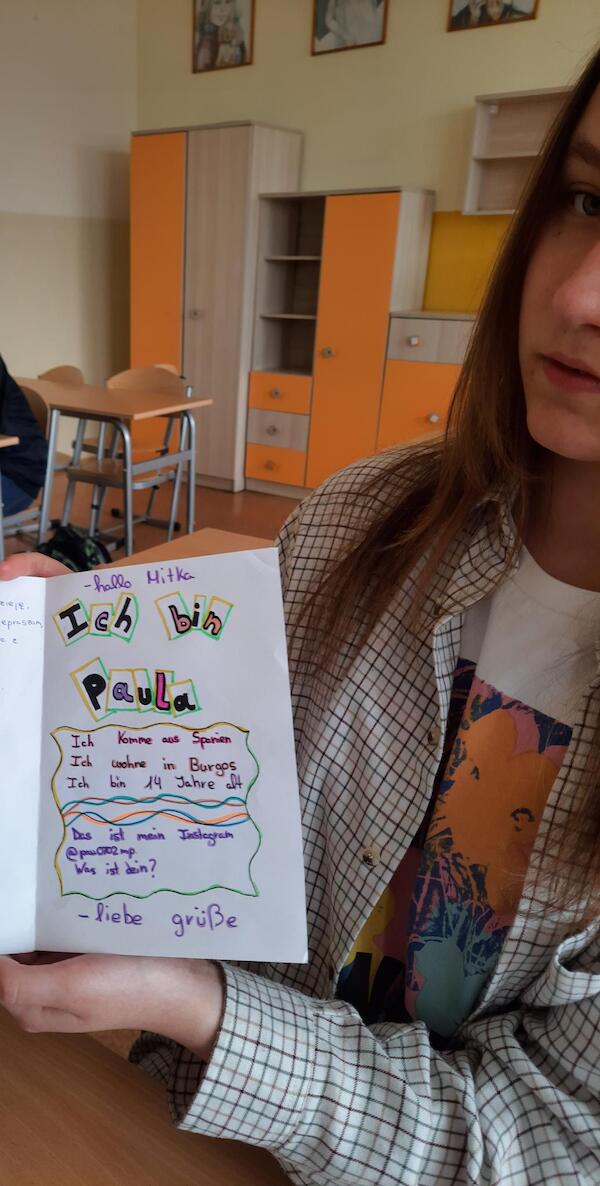 -hallo Mitka
Ich bin
Paula
Ich Komme aus Spanien
Ich wohne in Burgos
Ich bin 14 Jahre alt
Das ist mein Instagram
@pau0702mp
Was ist dein?
-liebe grüße